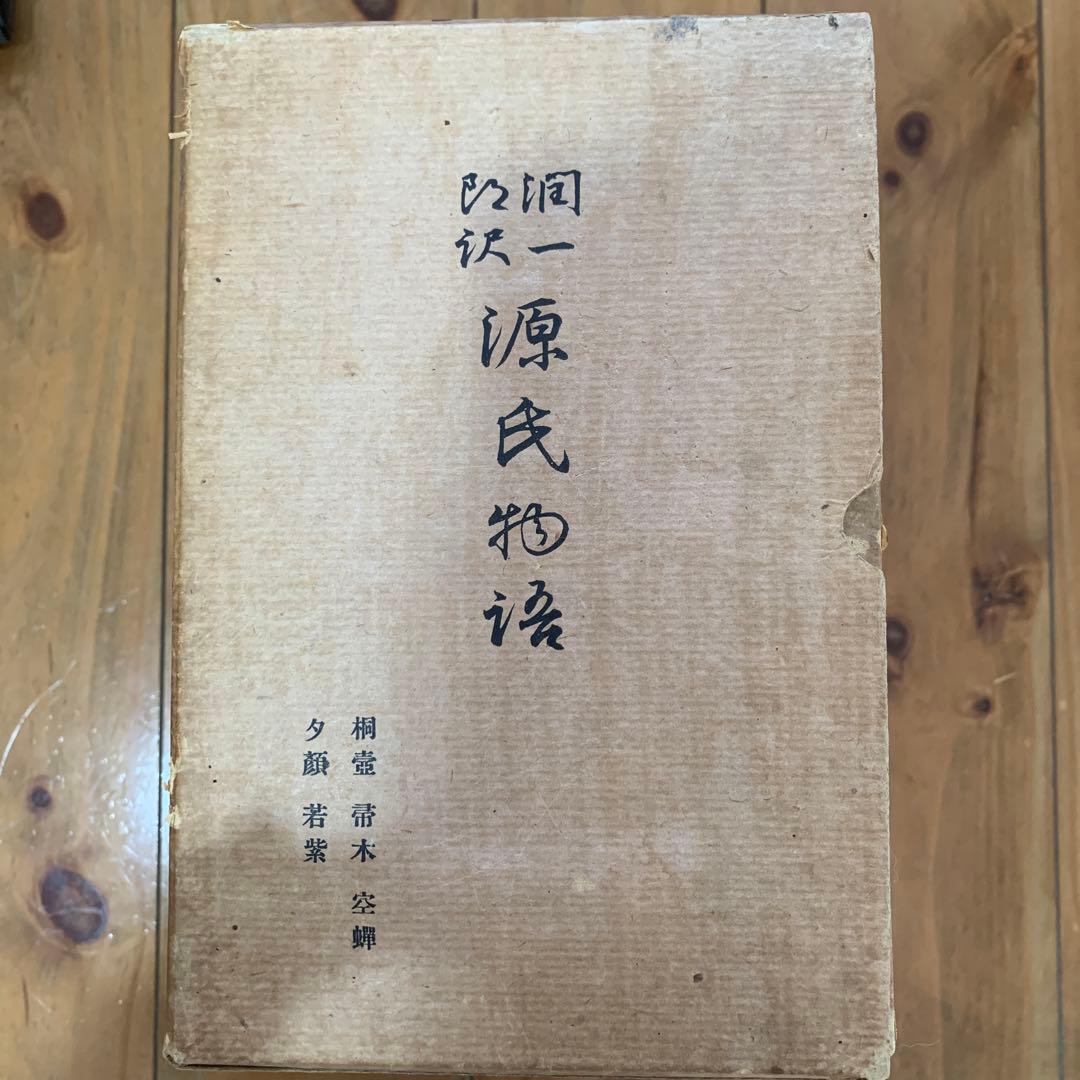 潤一
郎訳
源氏物語
桐壺 帚木 空蟬
夕顏 若紫